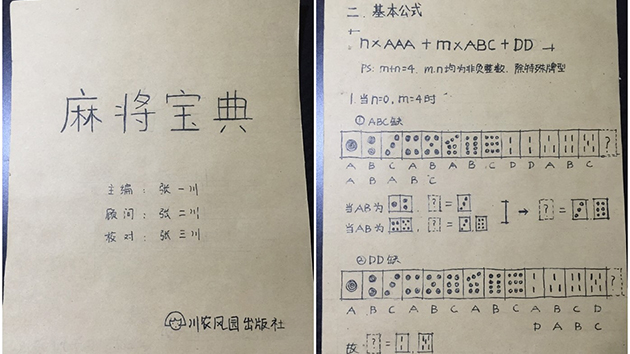 麻将宝典
主编：张一川
顾问：张二川
校对：张三川
川农风园出版社
二、基本公式
n×AAA + m×ABC + DD
PS: m+n=4. m.n均为非负整数, 除特殊牌型
1.当n=0, m=4时
① ABC缺
?
A B C A B A B C D D A B C
A B A B C
当AB为 ? =
当AB为 , ? =
→ ? =
② DD缺
?
A B C A B C A B C A B C D
D A B C
故 ? =